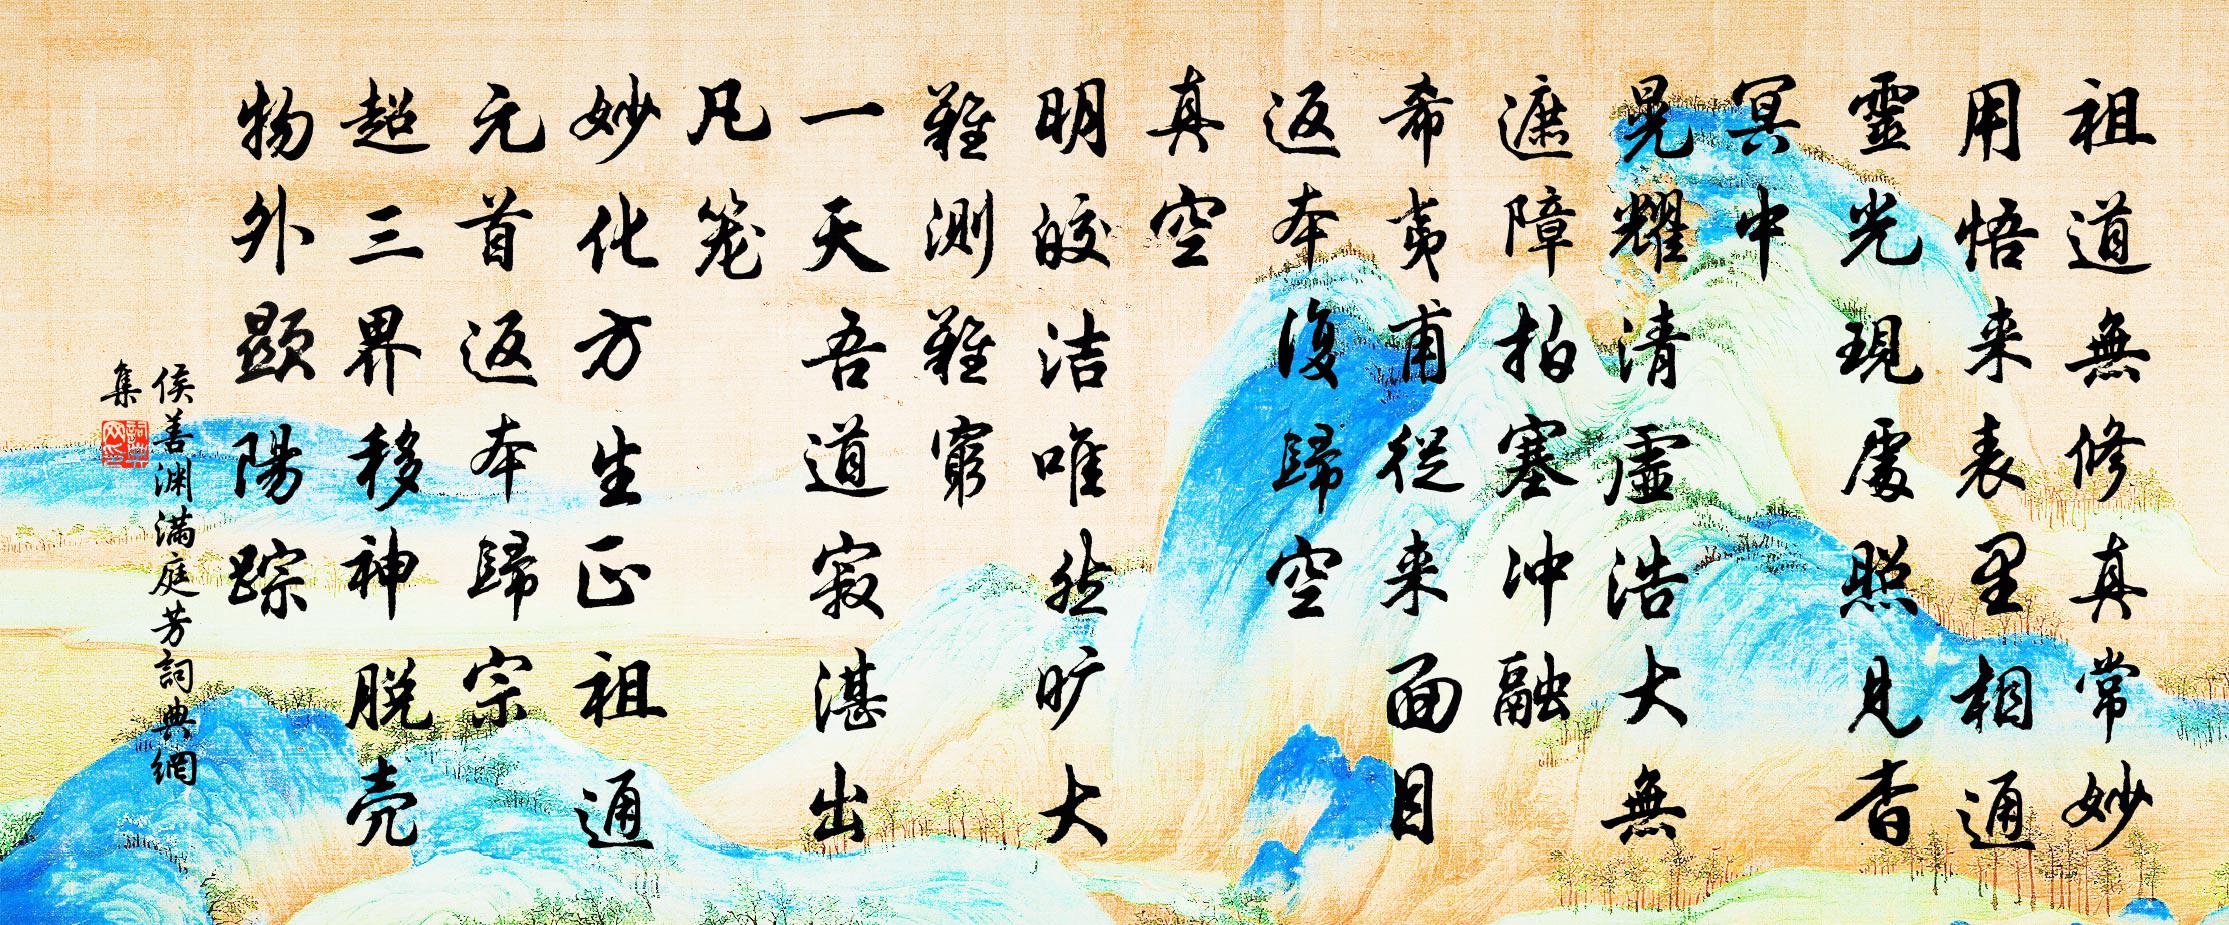 祖道無修真常妙
用悟来表里相通
靈光現處照見杳
冥中
晃耀清虛浩大無
遮障拍塞冲融
希夷甫從来面目
返本復歸空
真空
明皎洁唯然旷大
難測難窮
一天吾道寂湛出
凡笼
妙化方生正祖通
元首返本歸宗
超三界移神脱壳
物外顯陽踪
侯善渊满庭芳詞典網
集